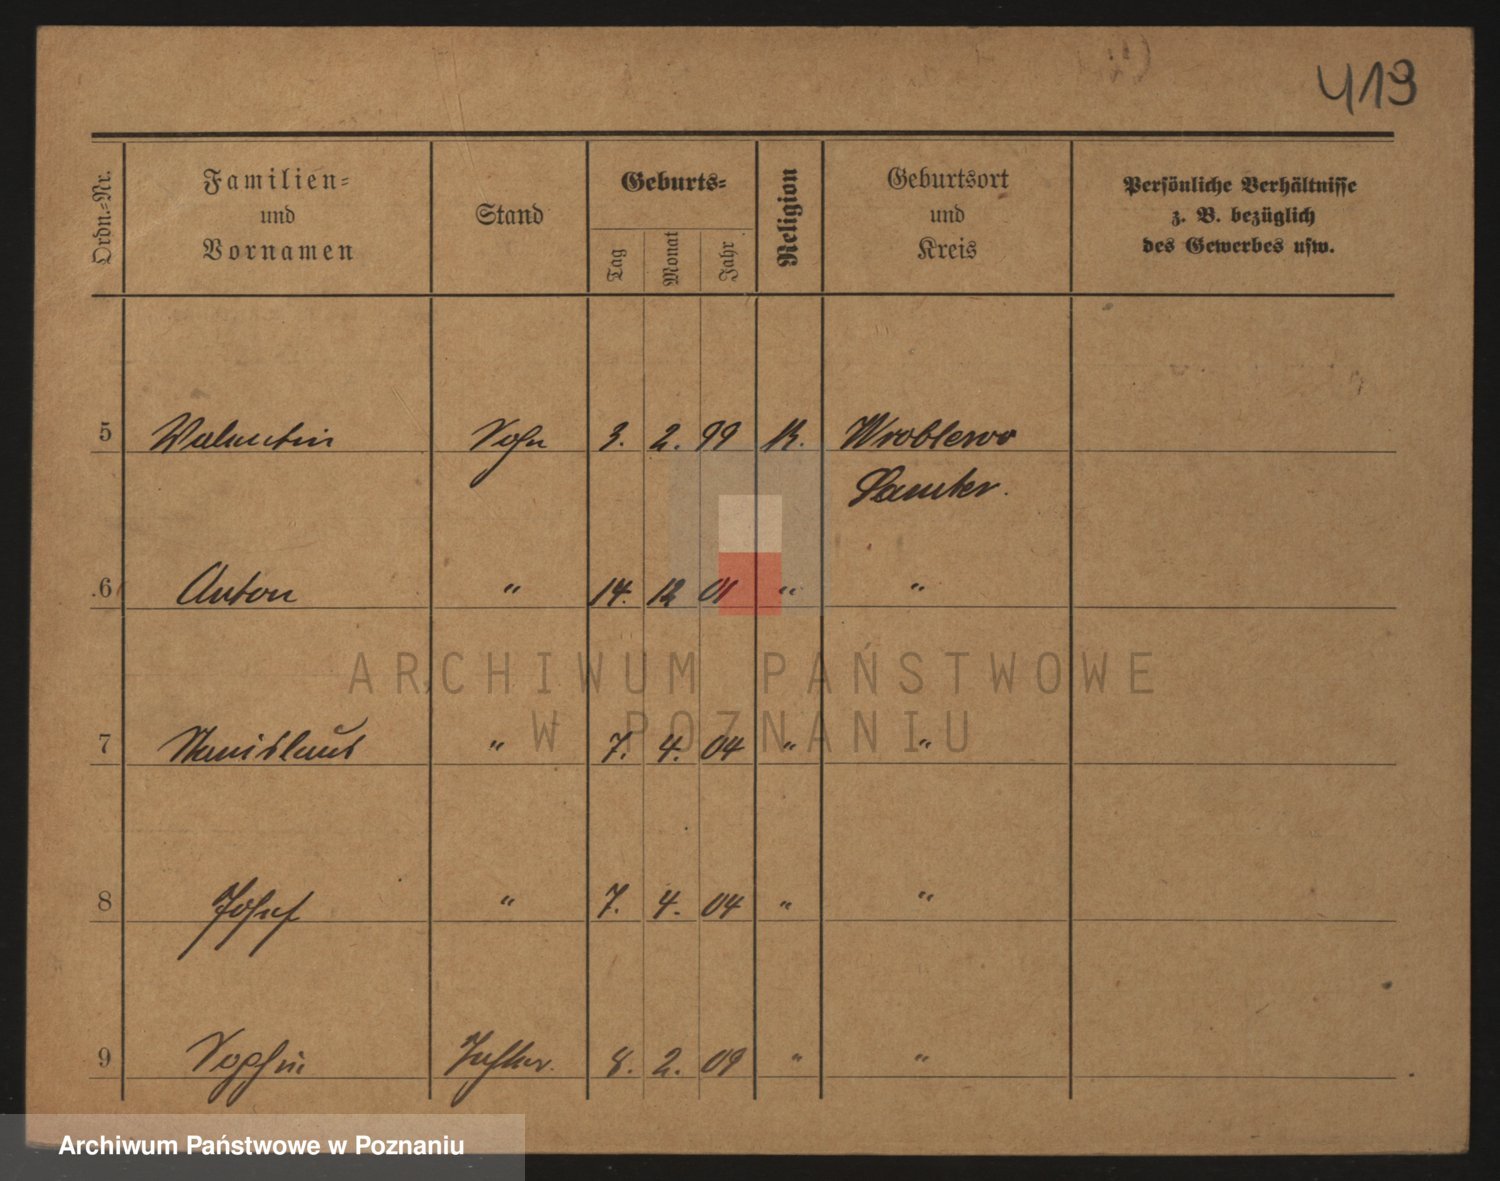 413
Ordn.-Nr.
Familien-
und
Vornamen
Stand
Geburts-
Tag
Monat
Jahr
Religion
Geburtsort
und
Kreis
Persönliche Verhältnisse
z. B. bezüglich
des Gewerbes usw.
5 Valentin Sohn 3. 2. 99 K. Wroblewo
Samter.
6 Anton " 14. 12 01 " "
ARCHIWUM PAŃSTWOWE
W POZNANIU
7 Stanislaus " 7. 4. 04 " "
8 Josef " 7. 4. 04 " "
9 Sophie Tochter. 8. 2. 09 " "
Archiwum Państwowe w Poznaniu